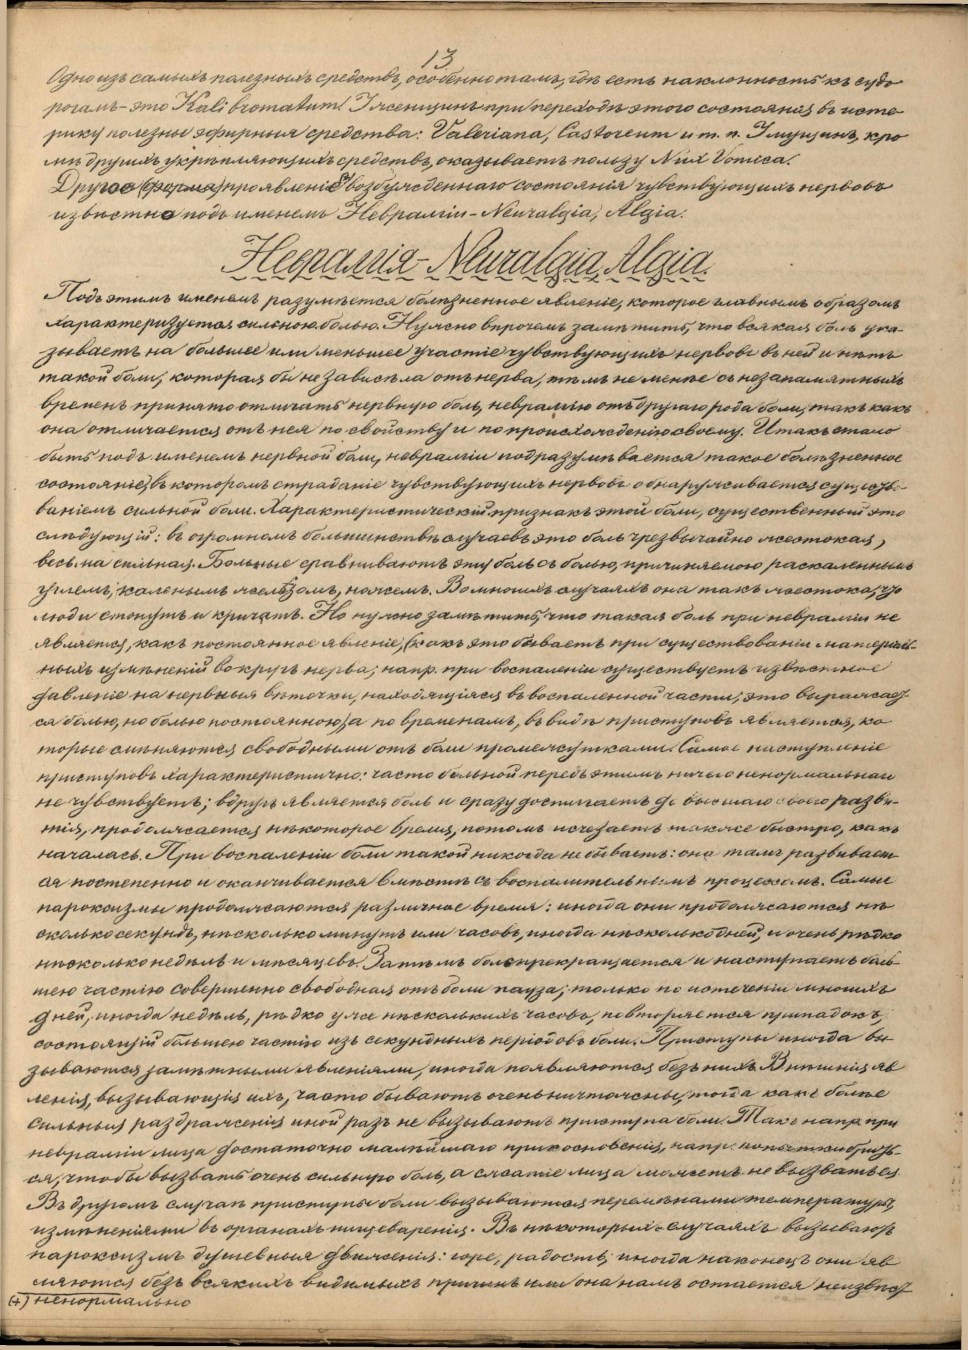 13
Одно изъ самыхъ полезныхъ средствъ, особенно тамъ, гдѣ есть наклонность къ судо
рогамъ – это Kali bromatum. У женщинъ при переходѣ этого состоянія въ исте
рику полезны эфирныя средства: Valeriana, Castoreum и т. п. У мущинъ, кро
мѣ другихъ укрѣпляющихъ средствъ, оказываетъ пользу Nux Vomica.
Другое (форма) проявленіе возбужденнаго состоянія чувствующихъ нервовъ
извѣстно подъ именемъ Невралгіи – Neuralgia, Algia.
Невралгія – Neuralgia, Algia.
Подъ этимъ именемъ разумѣется болѣзненное явленіе, которое главнымъ образомъ
характеризуется сильною болью. Нужно впрочемъ замѣтить, что всякая боль ука-
зываетъ на большее или меньшее участіе чувствующихъ нервовъ въ ней и нѣтъ
такой боли, которая бы не зависѣла отъ нерва, тѣмъ не менѣе съ незапамятныхъ
временъ принято отличать нервную боль, невралгію отъ другаго рода боли, такъ какъ
она отличается отъ нея по свойству и по происхожденію своему. Итакъ стало
быть подъ именемъ нервной боли, невралгіи подразумѣвается такое болѣзненное
состояніе, въ которомъ страданіе чувствующихъ нервовъ обнаруживается существо-
ваніемъ сильной боли. Характеристическій признакъ этой боли, существенный это
слѣдующій: въ огромномъ большинствѣ случаевъ это боль чрезвычайно жестокая,
весьма сильная. Больные сравниваютъ эту боль съ болью, причиняемою раскаленнымъ
углемъ, каленымъ желѣзомъ, ножемъ. Во многихъ случаяхъ она такъ жестока, что
люди стонутъ и кричатъ. Но нужно замѣтить, что такая боль при невралгіи не
является, какъ постоянное явленіе, (какъ это бываетъ при существованіи матеріаль-
ныхъ измѣненій вокругъ нерва; напр. при воспаленіи существуетъ извѣстное
давленіе на нервныя вѣточки, находящіяся въ воспаленной части; это выражает-
ся болью, но болью постоянною), а по временамъ, въ видѣ приступовъ является, ко
торые смѣняются свободными отъ боли промежутками. Самое наступленіе
приступовъ характеристично: часто больной передъ этимъ ничего ненормальнаго
не чувствуетъ; вдругъ является боль и сразу достигаетъ до высшаго своего разви-
тія, продолжается нѣкоторое время, потомъ исчезаетъ также быстро, какъ
началась. При воспаленіи боли такой никогда не бываетъ: она тамъ развивает-
ся постепенно и оканчивается вмѣстѣ съ воспалительнымъ процессомъ. Самые
пароксизмы продолжаются различное время: иногда они продолжаются нѣ
сколько секундъ, нѣсколько минутъ или часовъ, иногда нѣсколько дней, и очень рѣдко
нѣсколько недѣль и мѣсяцевъ. Затѣмъ боль прекращается и наступаетъ боль-
шею частію совершенно свободная отъ боли пауза; только по истеченіи многихъ
дней, иногда недѣль, рѣдко уже нѣсколькихъ часовъ, повторяется припадокъ,
состоящій большею частію изъ секундныхъ періодовъ боли. Приступы иногда вы-
зываются замѣтными явленіями, иногда появляются безъ нихъ. Внѣшнія яв
ленія, вызывающія ихъ, часто бываютъ очень ничтожны, тогда какъ болѣе
сильныя раздраженія иной разъ не вызываютъ приступа боли. Такъ напр. при
невралгіи лица достаточно малѣйшаго прикосновенія, напр.
ся, чтобы вызвать очень сильную боль, а сжатіе лица можетъ не вызвать ея.
Въ другомъ случаѣ приступы боли вызываются перемѣнами температуры,
измѣненіями въ органахъ пищеваренія. Въ нѣкоторыхъ случаяхъ вызываютъ
пароксизмъ душевныя движенія: горе, радость; иногда наконецъ они яв
ляются безъ всякихъ видимыхъ причинъ или она намъ остается неизвѣст
(+) ненормально